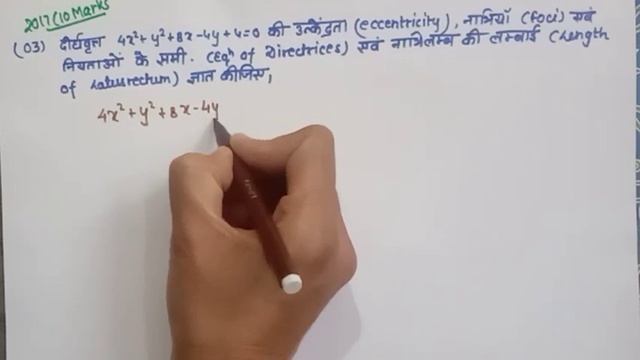 2017(10 Marks
(03) दीर्घवृत्त 4x²+y²+8x-4y+4=0 की उत्केंद्रता (eccentricity), नाभियाँ (foci) एवं
नियताओं के समी. (Eqⁿ of Directrices) एवं नाभिलम्ब की लम्बाई (Length
of Latusrectum) ज्ञात कीजिए,
4x²+y²+8x-4y